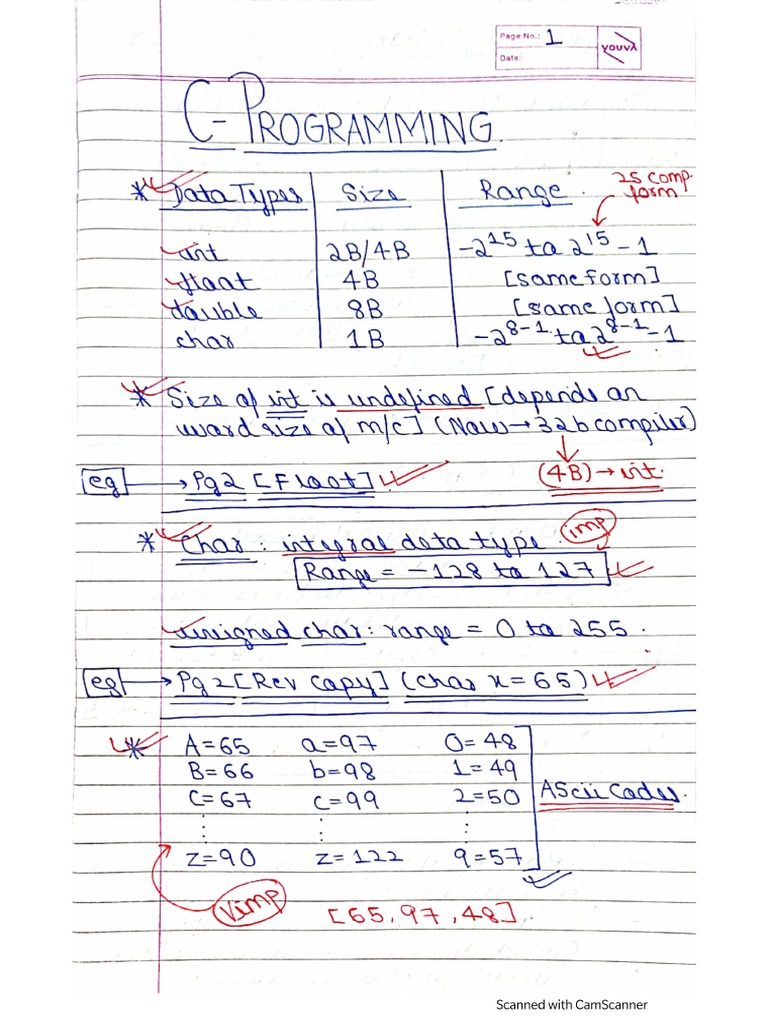 Page No.: 1
Date:
youva
C-PROGRAMMING.
* Data Types | Size | Range
2's comp. form
int | 2B/4B | -2^15 to 2^15 - 1
float | 4B | [same form]
double | 8B | [same form]
char | 1B | -2^8-1 to 2^8-1 - 1
* Size of int is undefined [depends on
word size of m/c] (Now → 32b compiler)
(4B) → int.
eg → Pg2 [Float]
* Char : integral data type
imp
Range = -128 to 127
unsigned char : range = 0 to 255.
eg → Pg2 [Rev copy] (char x = 65)
* A=65 a=97 0=48
B=66 b=98 1=49
C=67 c=99 2=50
ASCII Codes.
⋮ ⋮ ⋮
Z=90 z=122 9=57
Vimp
[65, 97, 48].
Scanned with CamScanner